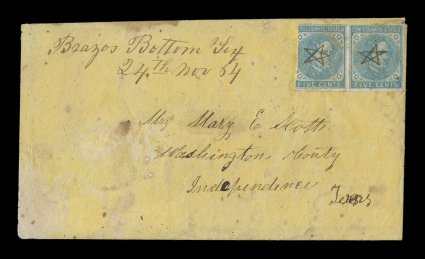 CONFEDERATE STATES CONFEDERATE STATES
FIVE CENTS FIVE CENTS
Brazos Bottom Tex
24th Nov 64
Mrs Mary E Scott
Washington County
Independence
Texas